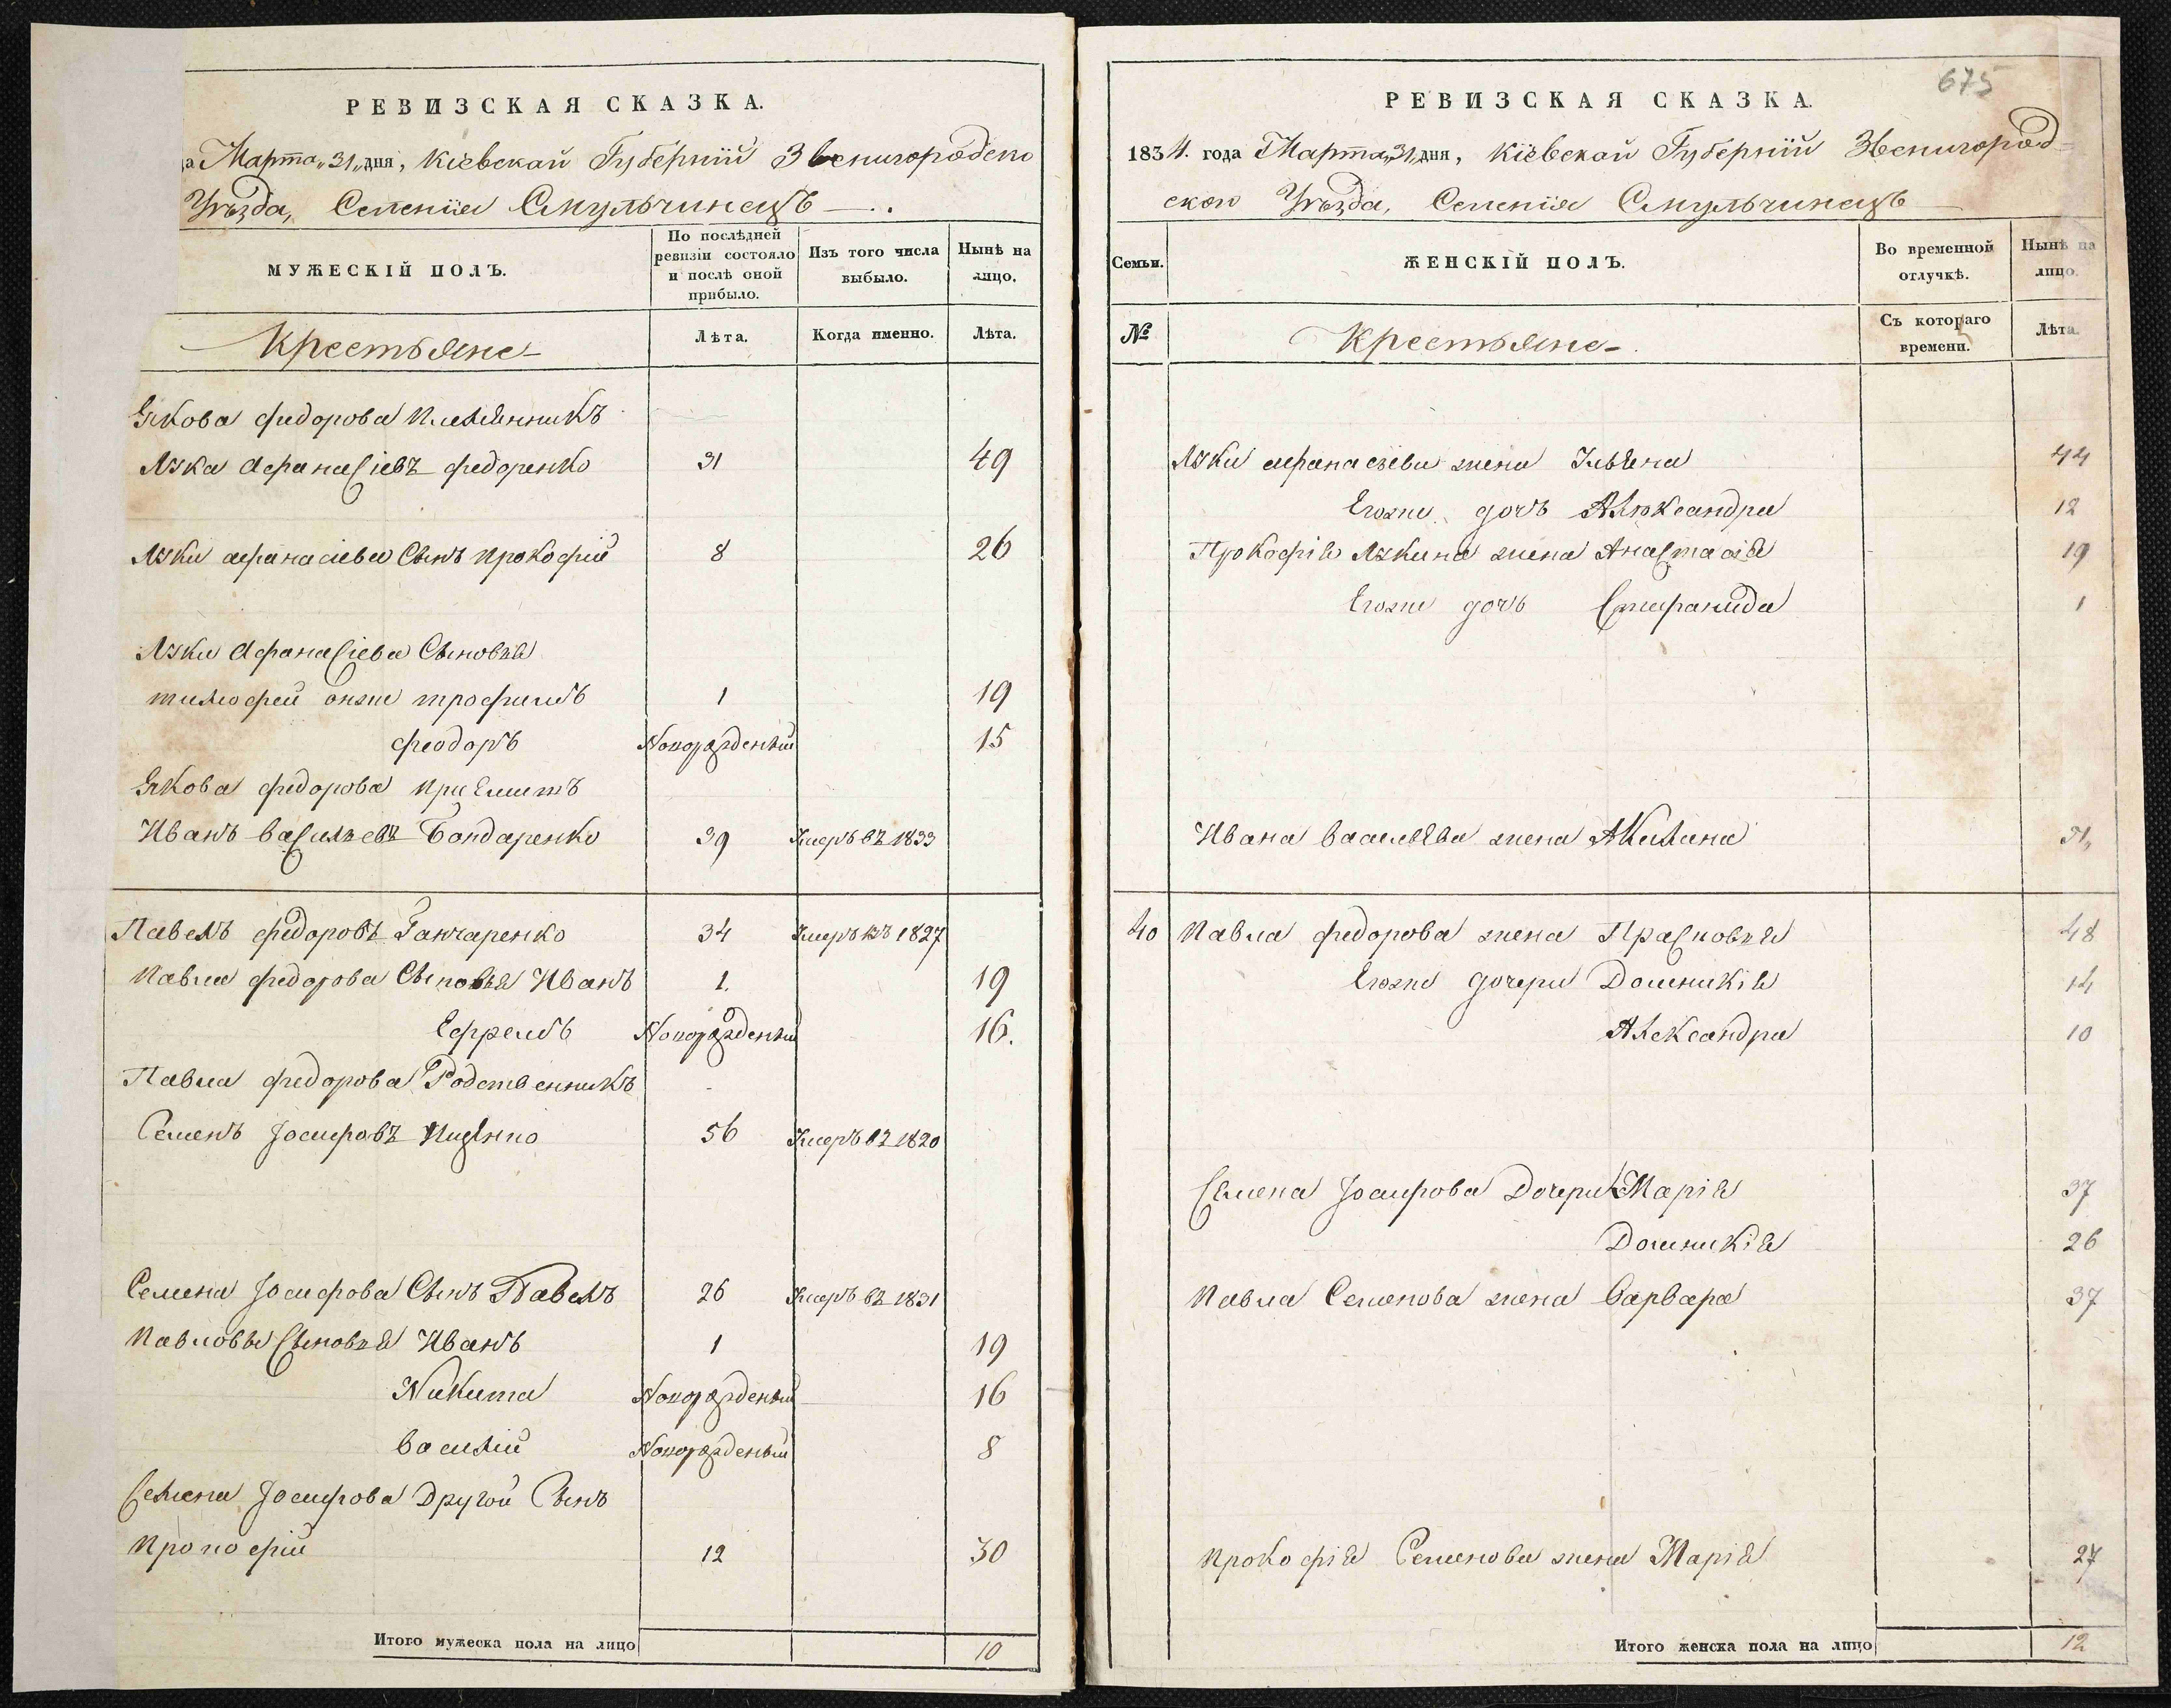 РЕВИЗСКАЯ СКАЗКА.
а Марта „31„ дня, Кіевской Губерніи Звенигородско
Уѣзда, Селенія Смульчинецъ
МУЖЕСКІЙ ПОЛЪ.
По послѣдней ревизіи состояло и послѣ оной прибыло.
Изъ того числа выбыло.
Нынѣ на лицо.
Крестьяне
Лѣта.
Когда именно.
Лѣта.
Якова Федорова Племянникъ
Лзка Афанасіевъ Федоренко 31 49
Лзки Афанасіева Сынъ Прокофій 8 26
Лзки Афанасіева Сыновья
Тимофей онже Трофимъ 1 19
Феодоръ Новорожденный 15
Якова Федорова Приемышъ
Иванъ Васильевъ Бондаренко 39 Умеръ въ 1833
Павелъ Федоровъ Ганчаренко 34 Умеръ въ 1827
Павла Федорова Сыновья Иванъ 1. 19
Ефремъ Новорожденный 16.
Павла Федорова Родственникъ
Семенъ Іосифовъ 56 Умеръ въ 1820
Семена Іосифова Сынъ Павелъ 26 Умеръ въ 1831
Павловы Сыновья Иванъ 1 19
Никита Новорожденный 16
Василій Новорожденный 8
Семена Іосифова Другой Сынъ
Прокофій 12 30
Итого мужеска пола на лицо 10
675
РЕВИЗСКАЯ СКАЗКА.
1834. года Марта „31„ дня, Кіевской Губерніи Звенигород=
ского Уѣзда, Селенія Смульчинецъ
Семьи.
ЖЕНСКІЙ ПОЛЪ.
Во временной отлучкѣ.
Нынѣ на лицо.
№
Крестьяне
Съ котораго времени.
Лѣта.
Лзки Афанасьева жена Ульяна 44
Егоже дочь Александра 12
Прокофія Лзкина жена Анастасія 19
Егоже дочь Стефанида 1
Ивана Васильева жена Акилина 51„
40 Павла Федорова жена Прасковья 48
Егоже дочери Доминикія 14
Александра 10
Семена Іосифова Дочери Марія 37
Доминикія 26
Павла Семенова жена Варвара 37
Прокофія Семенова жена Марія 27
Итого женска пола на лицо 12